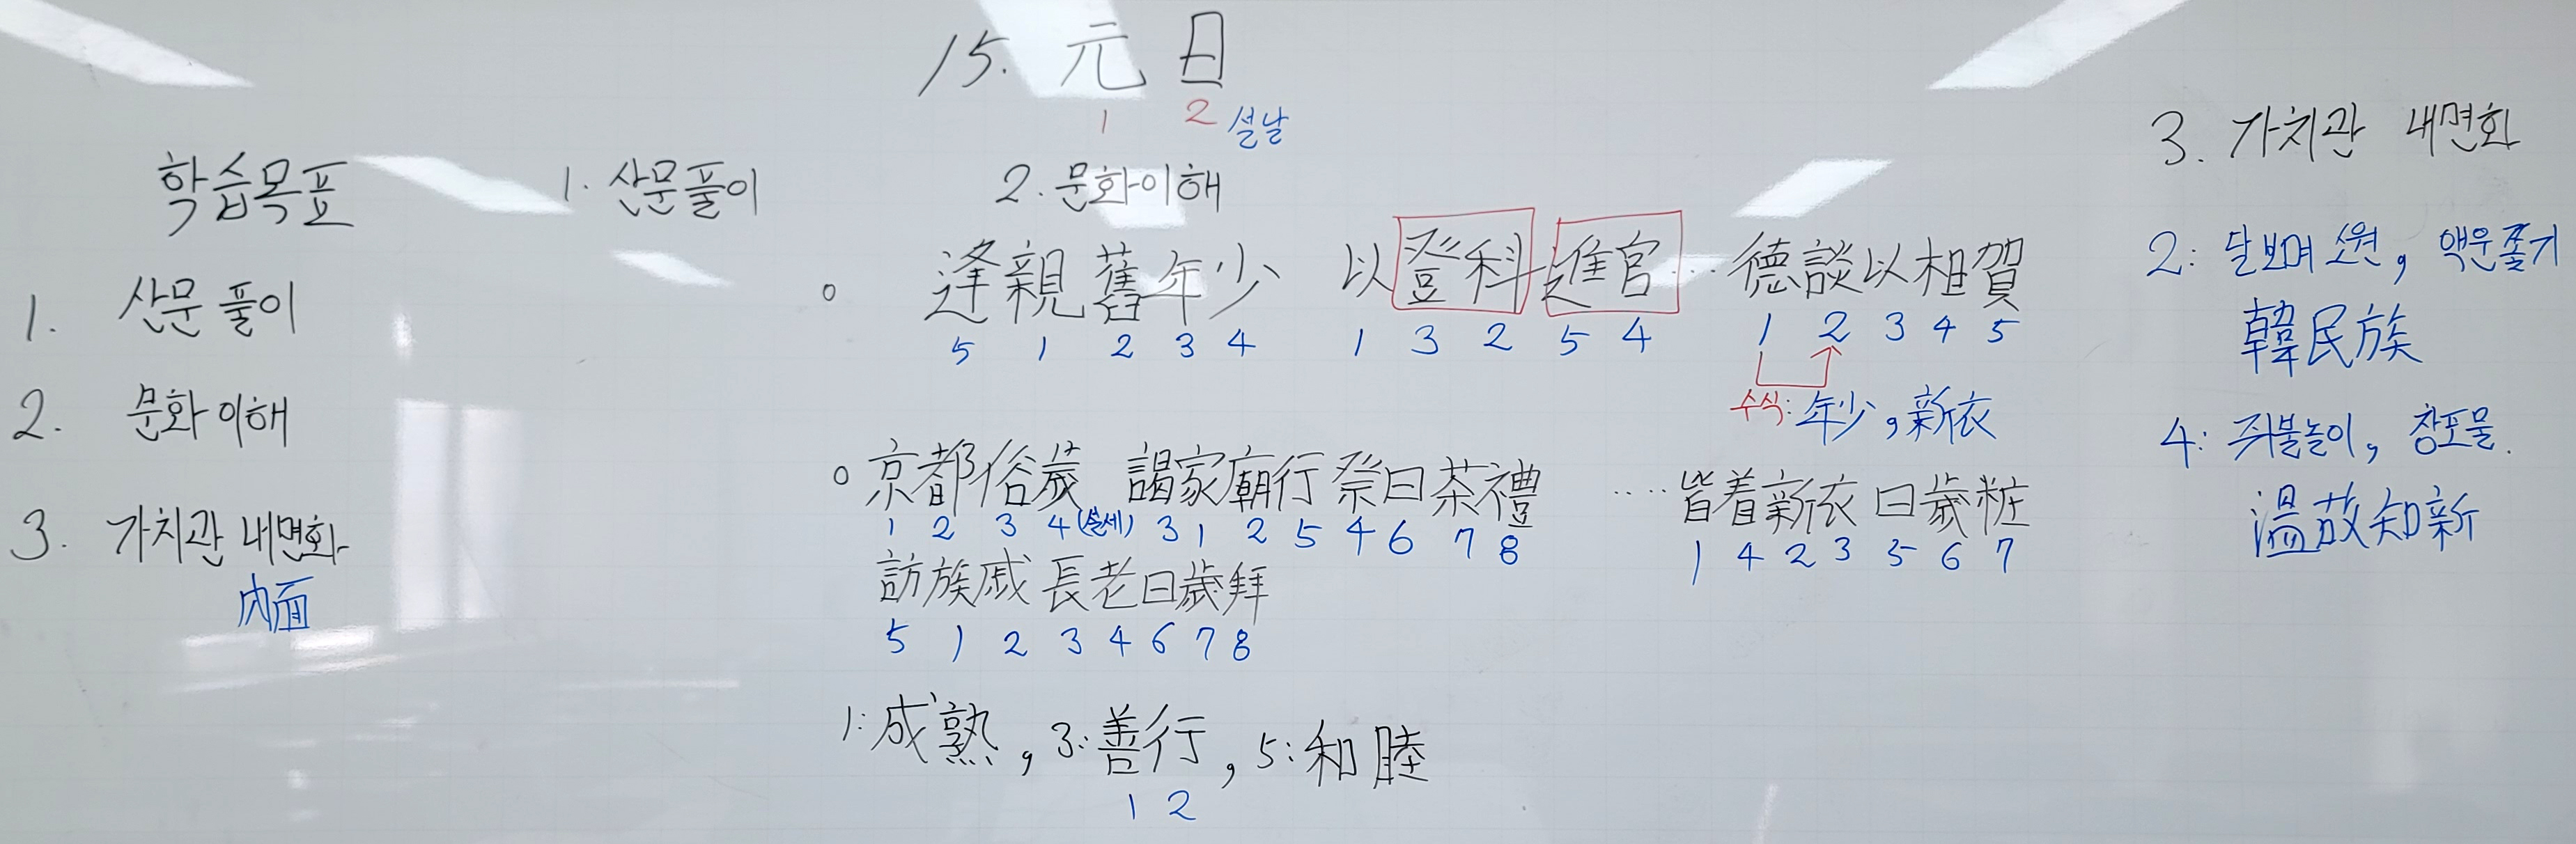 15. 元日
1 2 설날
학습목표
1. 산문 풀이
2. 문화 이해
3. 가치관 내면화
內面
1. 산문풀이
2. 문화이해
○ 逢親舊年少 以登科進官… 德談以相賀
5 1 2 3 4 1 3 2 5 4 1 2 3 4 5
수식: 年少, 新衣
○ 京都俗歲 謁家廟行祭曰茶禮 ···· 皆着新衣 曰歲粧
1 2 3 4 (설세) 3 1 2 5 4 6 7 8 1 4 2 3 5 6 7
訪族戚長老曰歲拜
5 1 2 3 4 6 7 8
1: 成熟, 3: 善行, 5: 和睦
1 2
3. 가치관 내면화
2: 달보며 소원, 액운쫓기
韓民族
4: 쥐불놀이, 창포물.
溫故知新